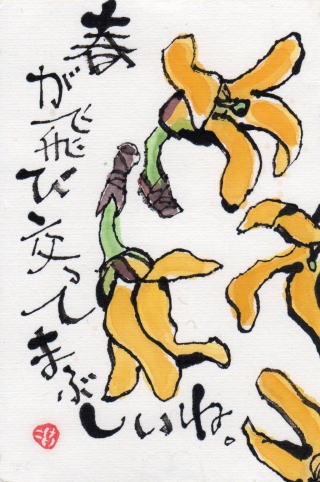 春
が飛び交って
まぶしいね。